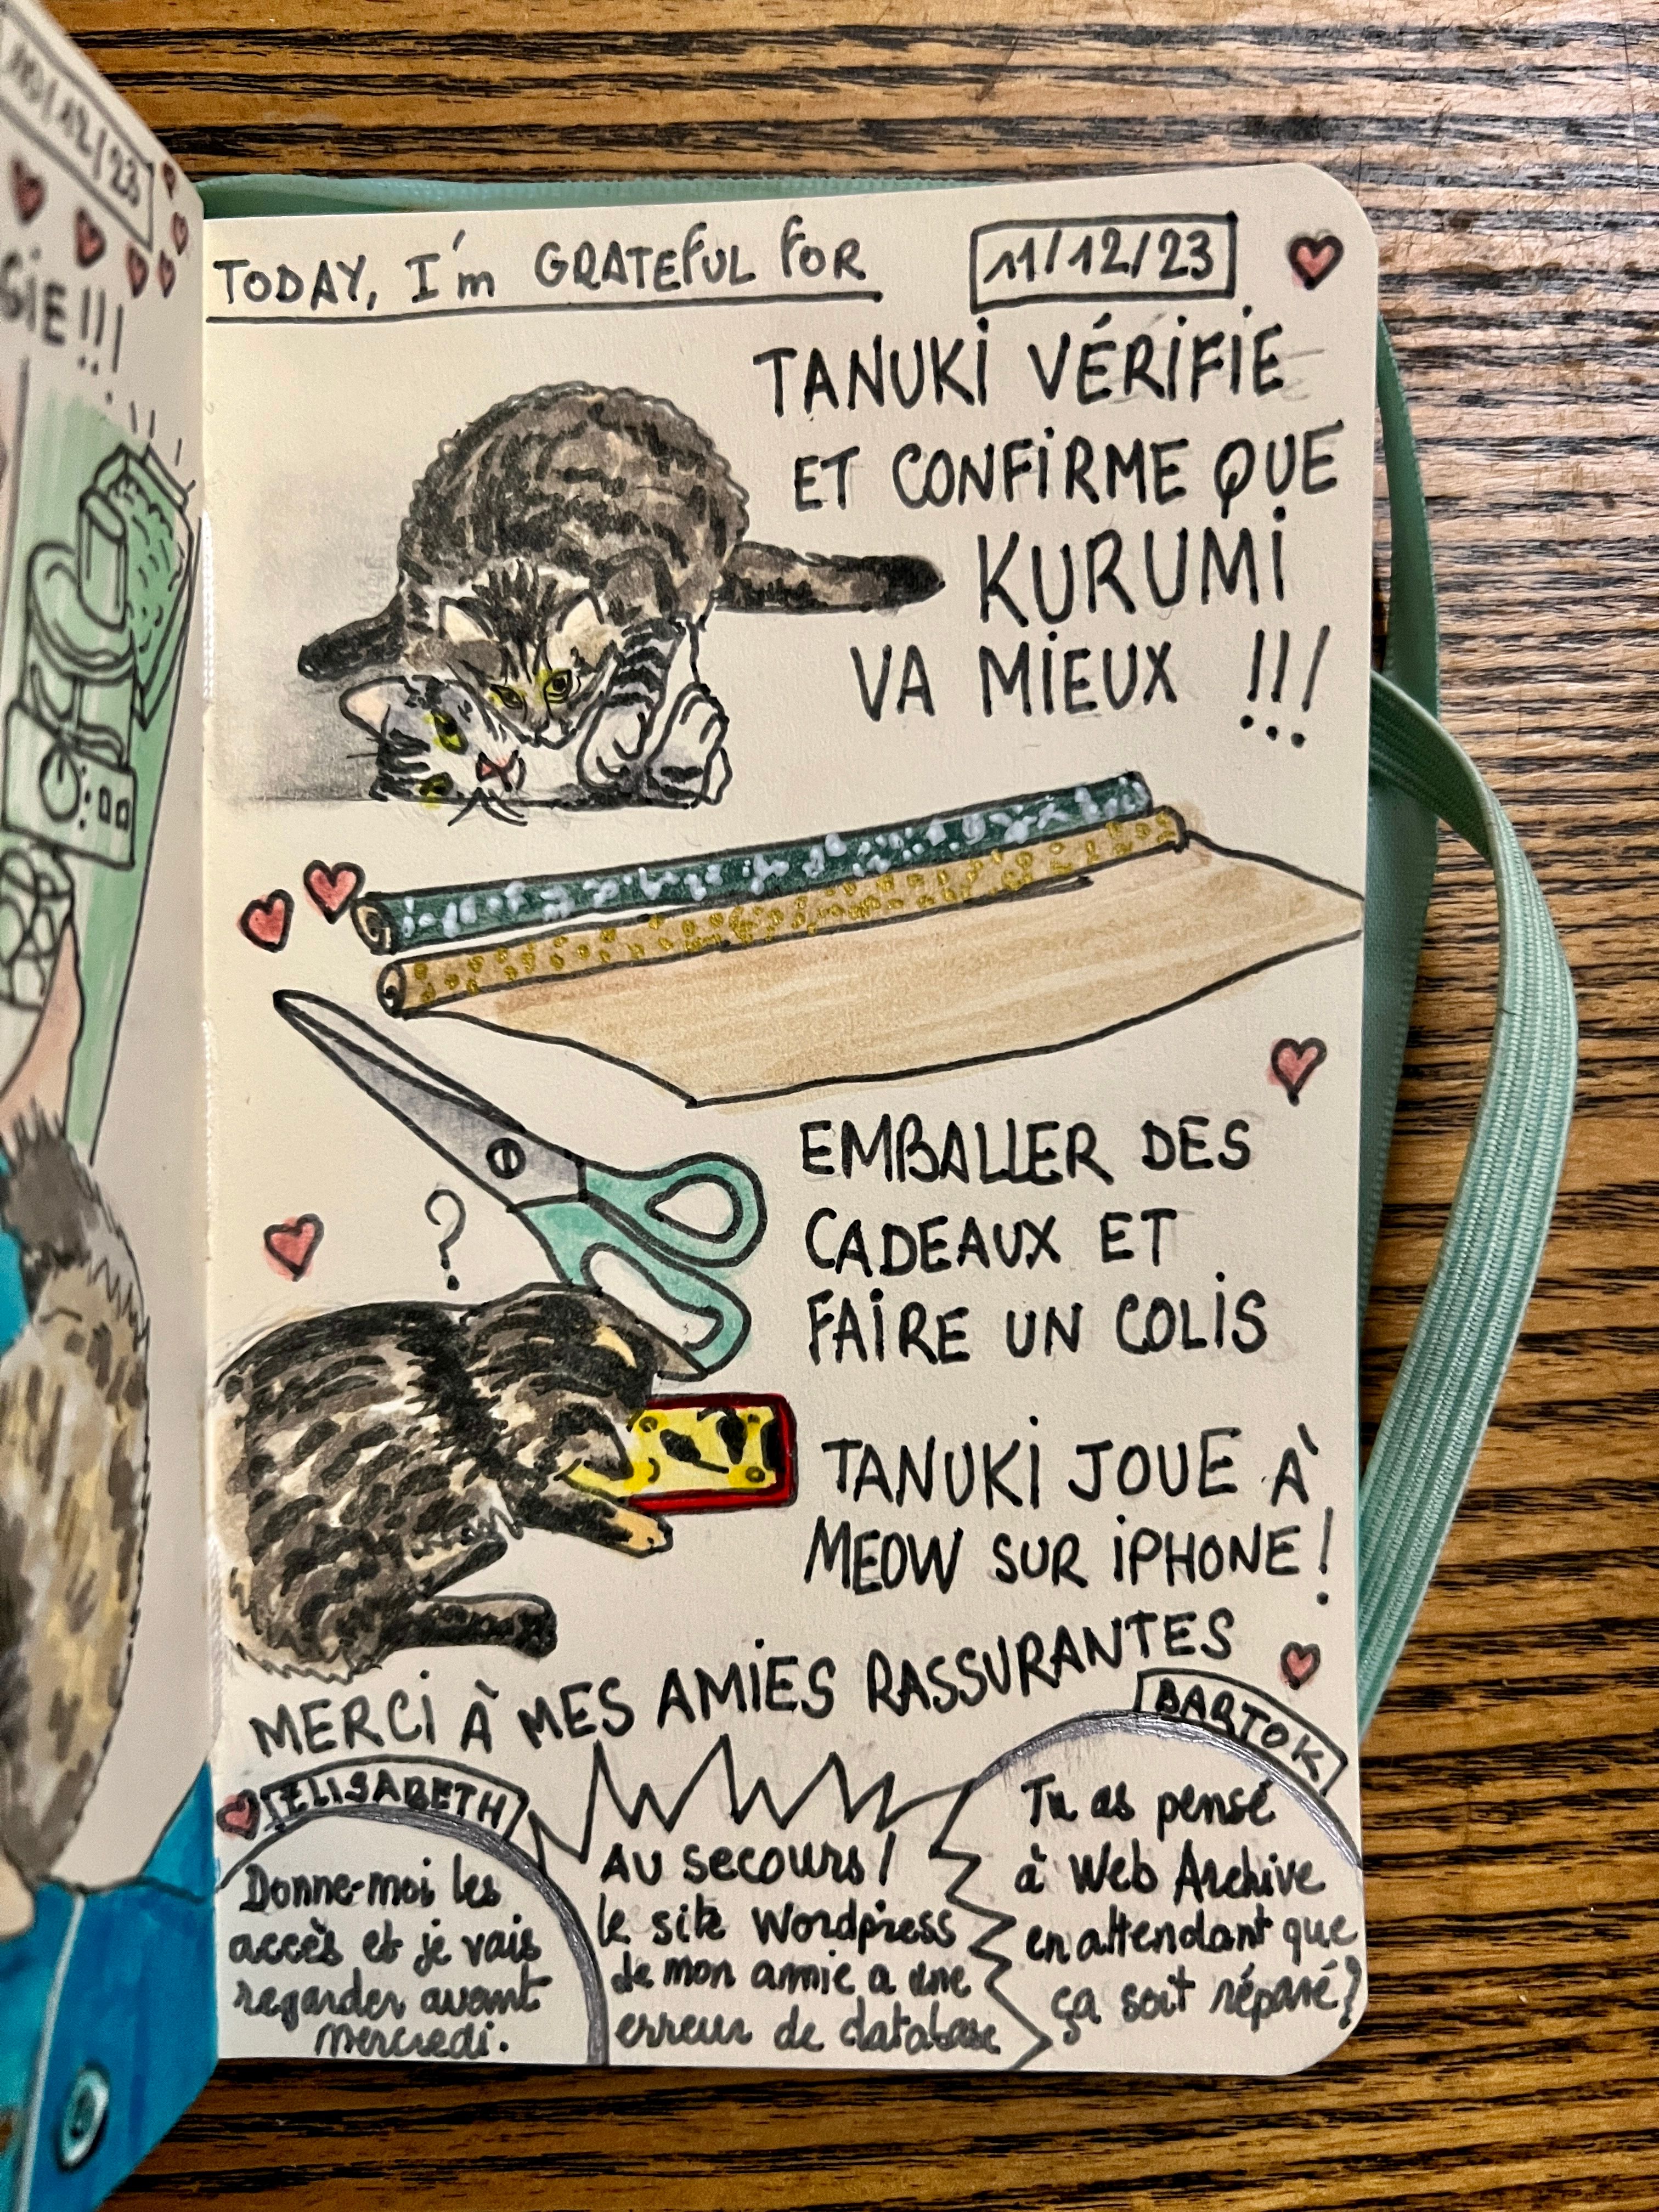 10/12/23
GIE!!!
TODAY, I'm GRATEFUL FOR
11/12/23
TANUKI VÉRIFIE
ET CONFIRME QUE
KURUMI
VA MIEUX !!!
EMBALLER DES
CADEAUX ET
FAIRE UN COLIS
?
TANUKI JOUE À
MEOW SUR iPHONE!
MERCI À MES AMIES RASSURANTES
ELISABETH
Donne-moi les
accès et je vais
regarder avant
mercredi.
AU SECOURS!
le site Wordpress
de mon amie a une
erreur de database
BARTOK
Tu as pensé
à Web Archive
en attendant que
ça soit réparé?